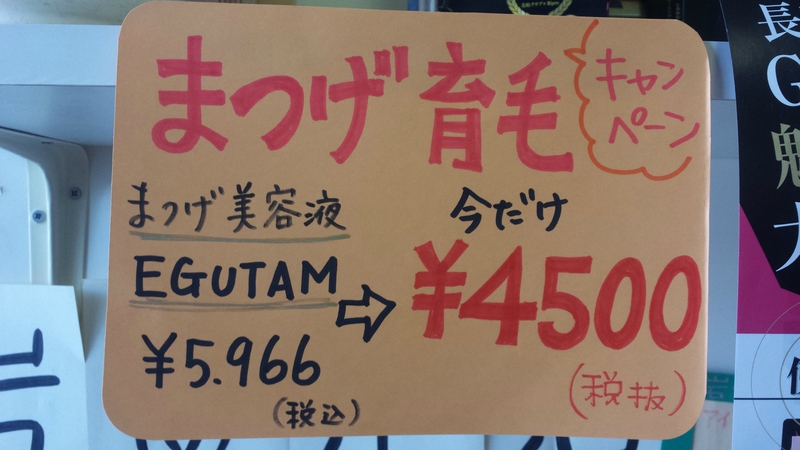 まつげ育毛
キャン
ペーン
まつげ美容液
EGUTAM
¥5.966
(税込)
今だけ
¥4500
(税抜)
長
G
魅